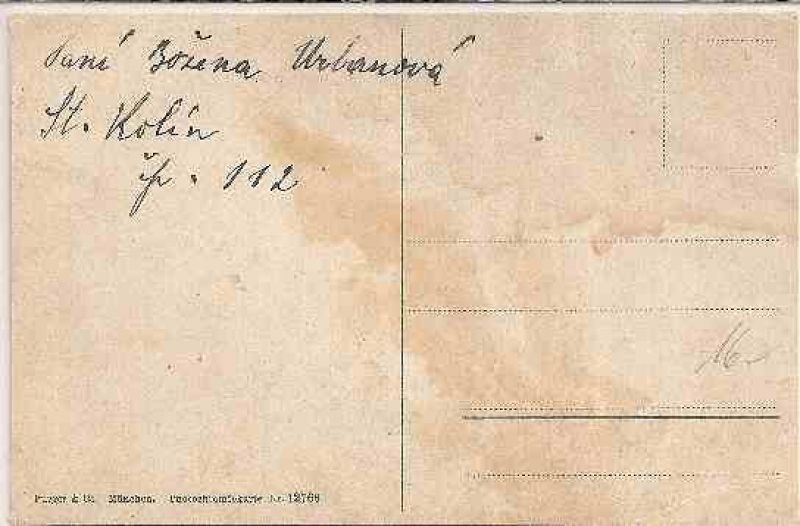 Paní Božena Urbanová
St. Kolín
čp. 112
Purger & Co. München. Photochromiekarte Nr. 12766